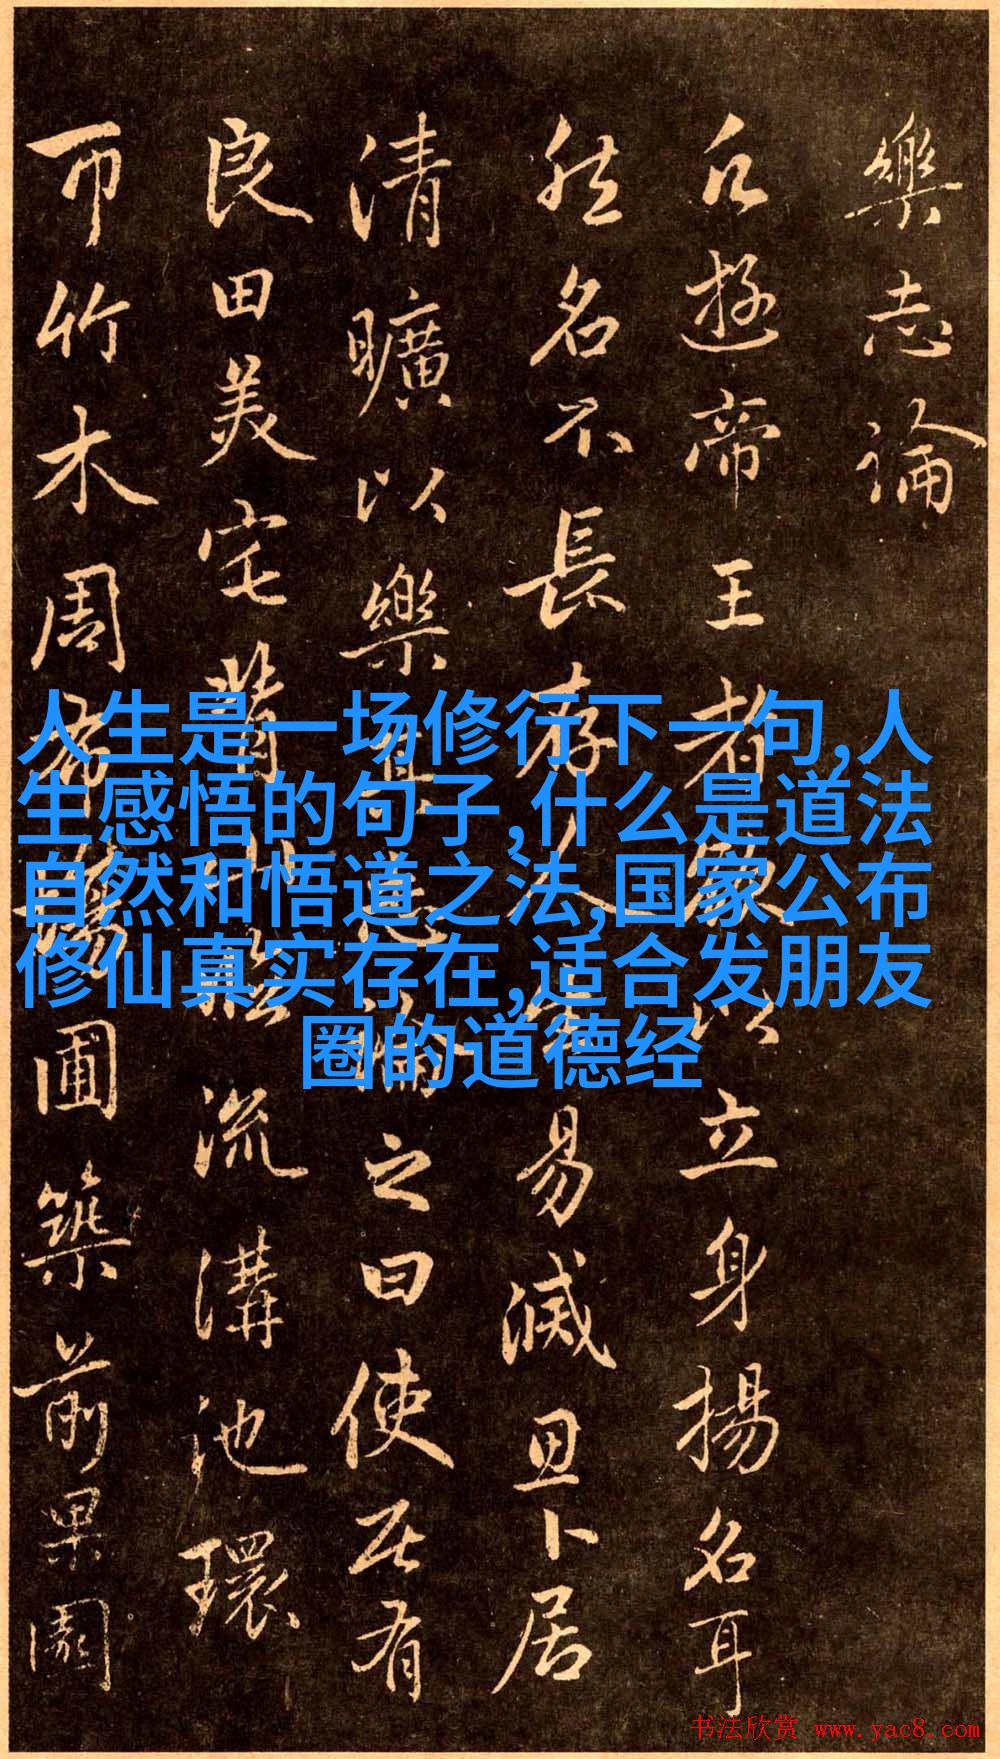 樂志論
凡遊帝王者欲以立身揚名耳
然名不長存人生易滅思卜居
清曠以樂其志論之曰使居有
良田美宅背山臨流溝池環
帀竹木周布場圃築前果園
人生是一场修行下一句,人
生感悟的句子,什么是道法
自然和悟道之法,国家公布
修仙真实存在,适合发朋友
圈的道德经
书法欣赏 www.yac8.com